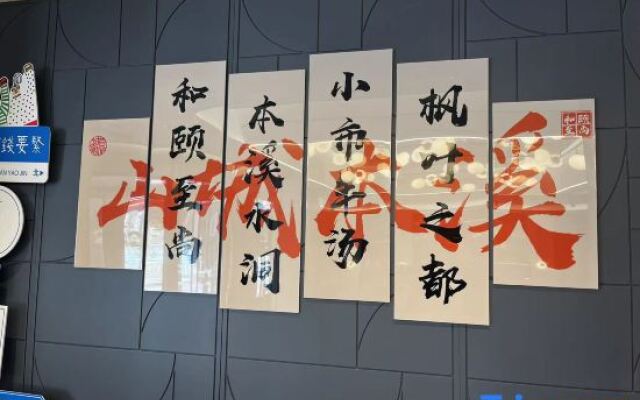 山城本溪
和颐至尚
本溪水洞
小市羊汤
枫叶之都
和颐
至尚
錢要緊
北